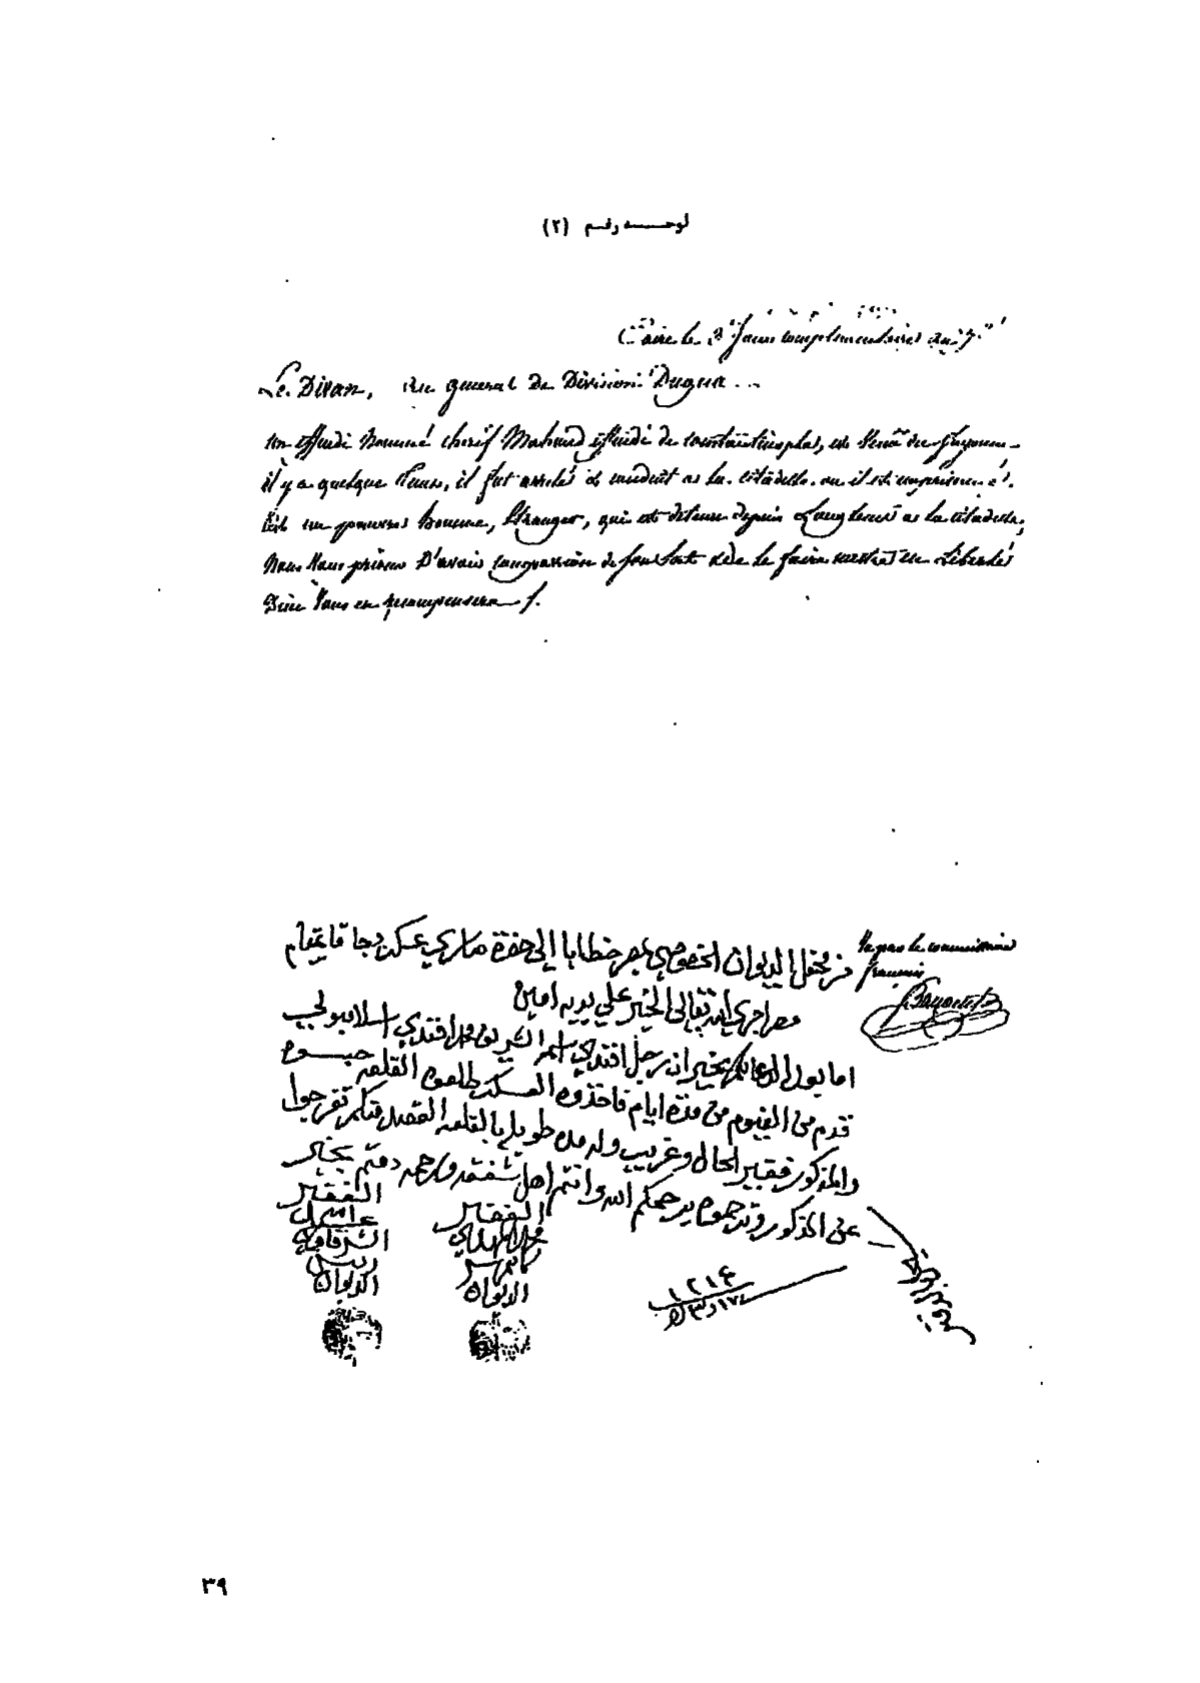 لوحــــة رقم (٢)
Caire le 3 Jours complémentaires an 7
Le Divan, au general de Division Dugua
un effendi nommé cherif Mahmd effendi de Constantinople, est venû du fayoum
il y a quelque tems, il fut arrêté et conduit a la citadelle ou il est emprisonné.
C'est un pauvre homme, Etranger, qui est detenu depuis longtems a la citadelle,
Nous vous prions D'avoir compassion de son sort et de le faire mettre en Liberté
Dieu vous en recompensera
Vu par le commissaire
français
من محفل الديوان الخصوصي بمصر خطابا إلى حضرة صاري عسكر دجا قايمقام
مصر اجرى الله تعالى الخير على يديه امين
اما بعد الدعا لكم بخير ان رجل افندي اسمه الشريف محمد افندي اسلامبولي
قدم من الفيوم من مدة ايام فاخذوه العسكر طلعوه القلعه حبسوه
والمذكور فقير الحال وغريب وله مده طويله بالقلعه القصد منكم تفرجوا
عن المذكور وترحموه يرحمكم الله وانتم اهل شفقه ورحمه دمتم بخير
الفقير
محمد المهدي
كاتم سر
الديوان
الفقير
عبدالله
الشرقاوي
ريس
الديوان
١٢١٤